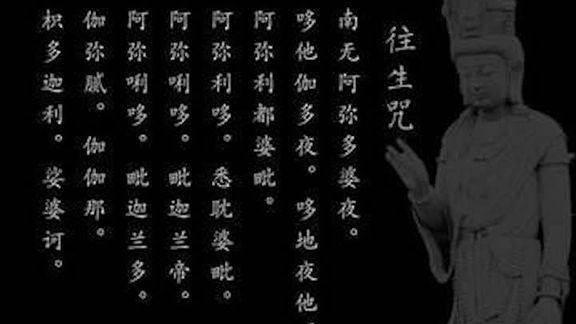 往生咒
南无阿弥多婆夜。
哆他伽多夜。哆地夜他。
阿弥利都婆毗。
阿弥利哆。悉耽婆毗。
阿弥唎哆。毗迦兰帝。
阿弥唎哆。毗迦兰多。
伽弥腻。伽伽那。
枳多迦利。娑婆诃。